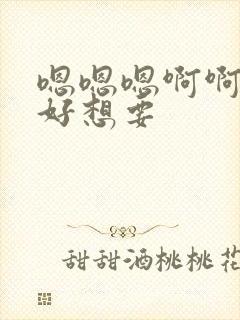 嗯嗯嗯啊啊
好想要
甜甜酒桃桃花